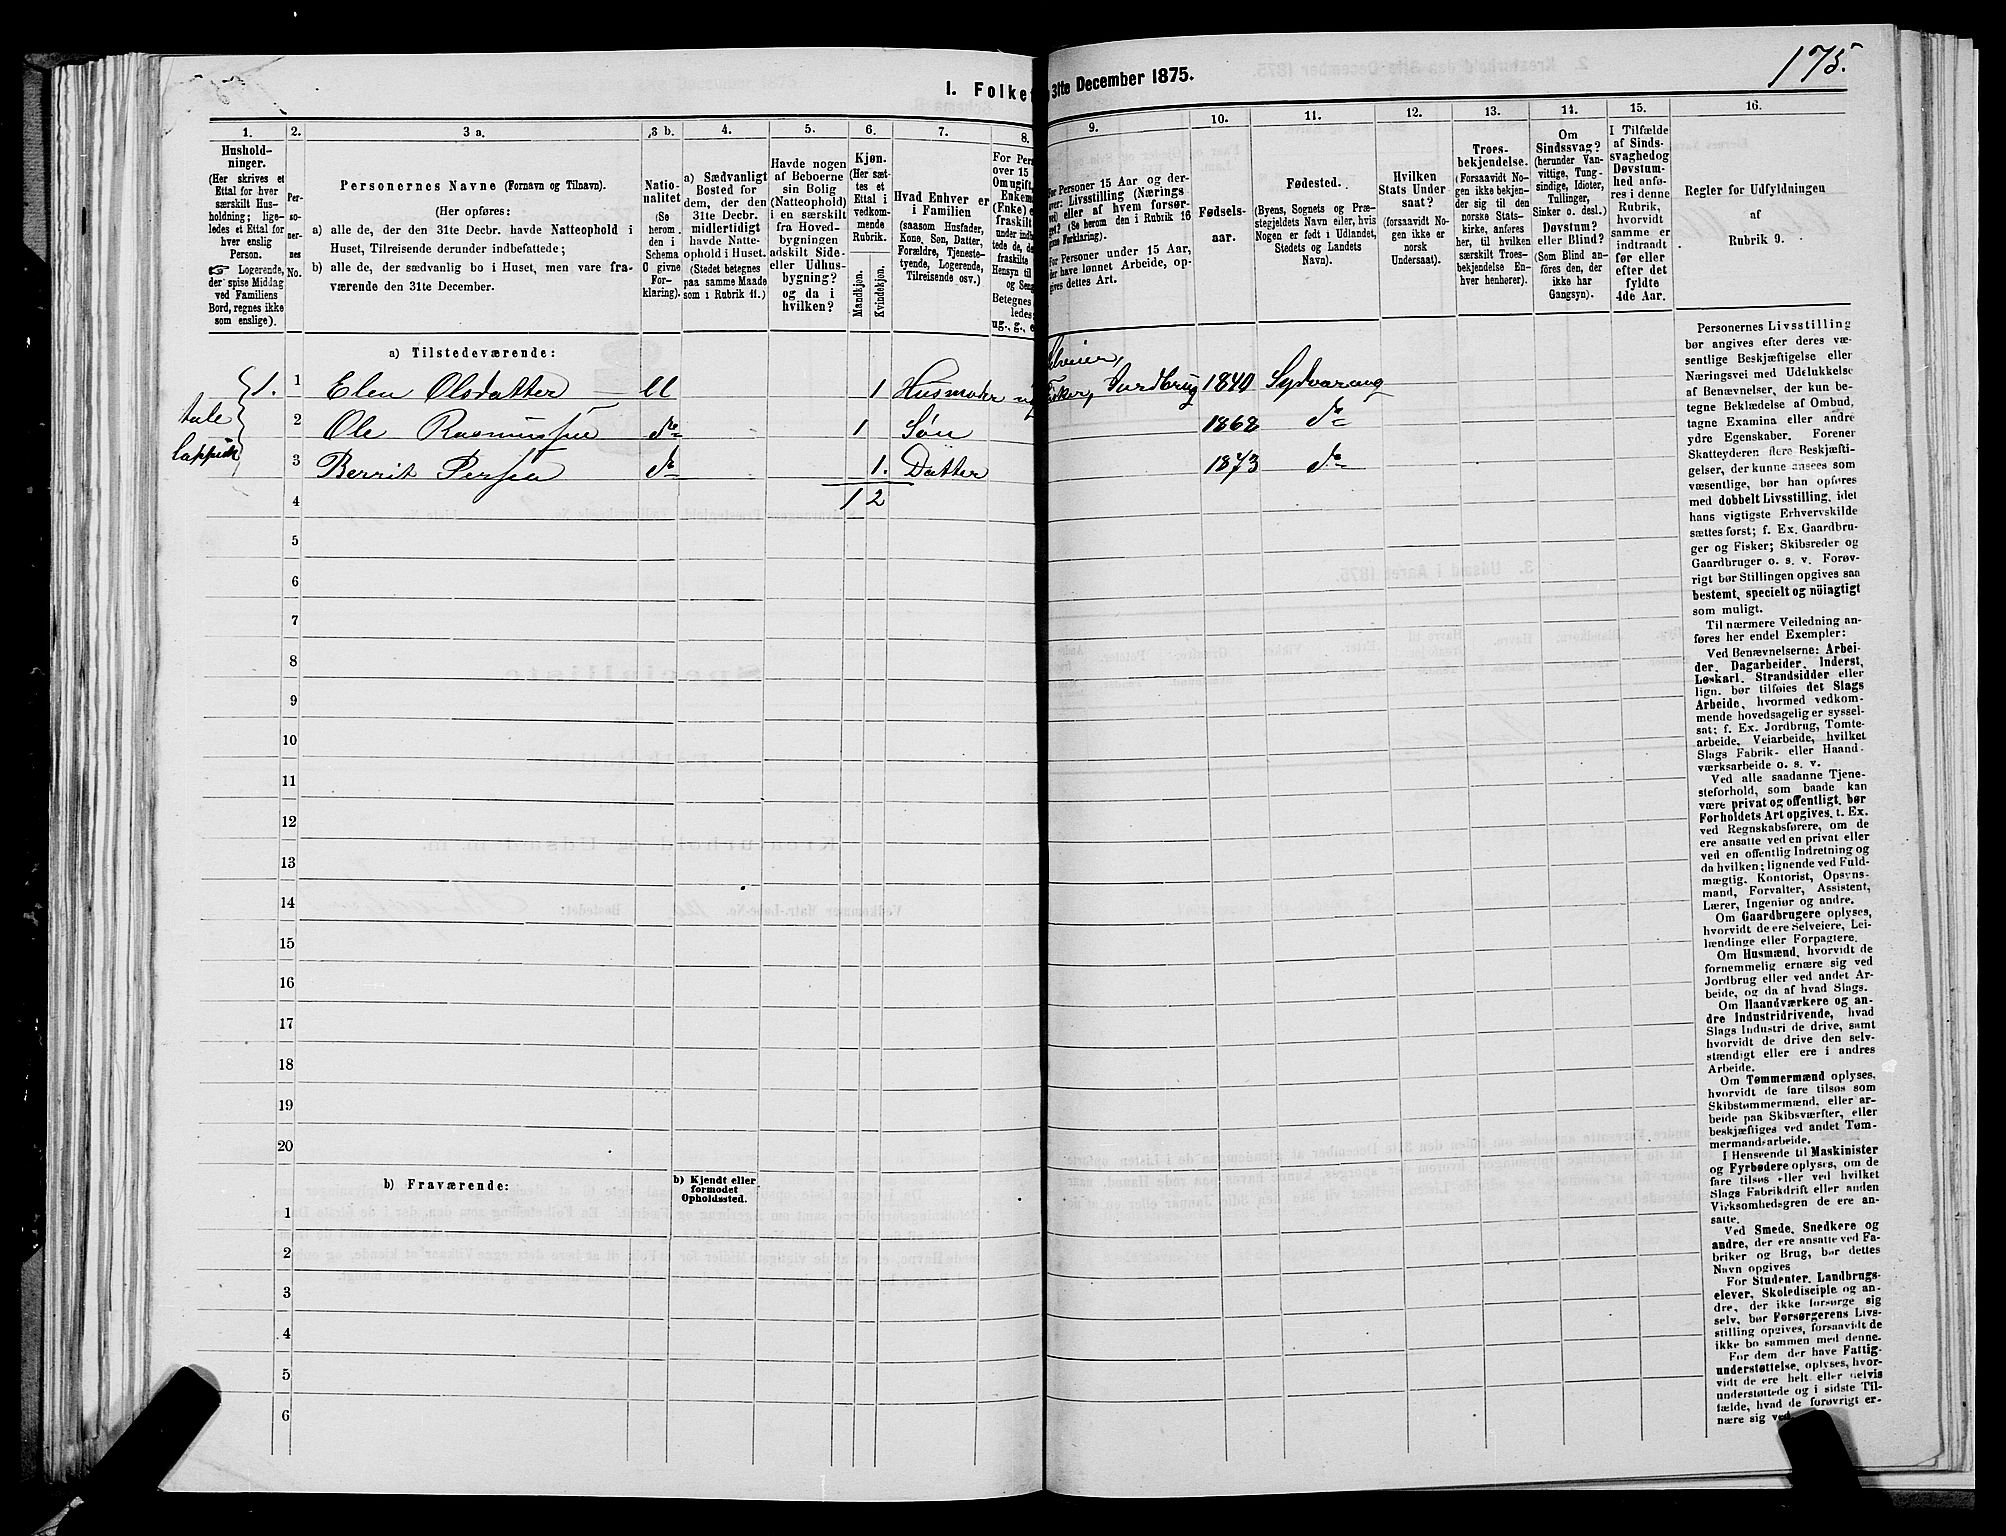 175.
I. Folket
3lte December 1875.
1.
2.
3 a.
3 b.
4.
5.
6.
7.
8.
9.
10.
11.
12.
13.
14.
15.
16.
Hushold-
ninger.
(Her skrives et
Ettal for hver
særskilt Hus-
holdning; lige-
ledes et Ettal for
hver enslig
Person.
☞ Logerende,
der spise Middag
ved Familiens
Bord, regnes ikke
som enslige).
Per-
so-
ner-
nes
No.
Personernes Navne (Fornavn og Tilnavn).
(Her opføres:
a) alle de, der den 31te Decbr. havde Natteophold i
Huset, Tilreisende derunder indbefattede;
b) alle de, der sædvanlig bo i Huset, men vare fra-
værende den 31te December.
Natio-
nalitet
(Se
herom
den i
Schema
O givne
For-
klaring).
a) Sædvanligt
Bosted for
dem, der den
31te Decbr.
midlertidigt
havde Natte-
ophold i Huset.
(Stedet betegnes
paa samme Maade
som i Rubrik 11.)
Havde nogen
af Beboerne
sin Bolig
(Natteophold)
i en særskilt
fra Hoved-
bygningen
adskilt Side-
eller Udhus-
bygning?
og da i
hvilken?
Kjøn.
(Her sæt-
tes et
Ettal i
vedkom-
mende
Rubrik.
Mandkjøn.
Kvindekjøn.
Hvad Enhver er
i Familien
(saasom Husfader,
Kone, Søn, Datter,
Forældre, Tjeneste-
tyende, Logerende,
Tilreisende osv.)
For Pers
over 15
Omugift,
Enkem
(Enke) e
fraskilt
under indb
tede de,
fraskilte
Hensyn til
og Seng
Betegnes
ledes:
ug., g., e
For Personer 15 Aar og der-
over: Livsstilling (Nærings
vei) eller af hvem forsør-
get? (Se herom den i Rubrik 16
givne Forklaring).
For Personer under 15 Aar,
der have lønnet Arbeide, op-
gives dettes Art.
Fødsels-
aar.
Fødested.
(Byens, Sognets og Præ-
stegjeldets Navn eller, hvis
Nogen er født i Udlandet,
Stedets og Landets
Navn).
Hvilken
Stats Under-
saat?
(forsaavidt No-
gen ikke er
norsk
Undersaat).
Troes-
bekjendelse.
(Forsaavidt No-
gen ikke bekjen-
der sig til den
norske Stats-
kirke, anføres
her, til hvilken
særskilt Troes-
bekjendelse En-
hver henhører).
Om
Sindssvag?
(herunder Van-
vittige, Tung-
sindige, Idioter,
Tullinger,
Sinker o. desl.)
Døvstum?
eller Blind?
(Som Blind an-
føres den, der
ikke har
Gangsyn).
I Tilfælde
af Sinds-
svaghedog
Døvstum-
hed anfø-
res i denne
Rubrik,
hvorvidt
samme er
indtraadt
før eller
efter det
fyldte
4de Aar.
Regler for Udfyldningen
af
Rubrik 9.
a) Tilstedeværende:
1. 1 Elen Olsdatter M 1 Husmoder Selveier, Fisker, Jordbrug 1840 Sydvaranger
tale
2 Ole Rasmussen do 1 Søn 1868 do
lappisk
3 Berrit Persen do 1. Datter 1873 do
4 1 2
5
6
7
8
9
10
11
12
13
14
15
16
17
18
19
20
b) Fraværende:
b) Kjendt eller
formodet
Opholdssted.
1
2
3
4
5
6
Personernes Livsstilling
bør angives efter deres væ-
sentlige Beskjæftigelse eller
Næringsvei med Udelukkelse
af Benævnelser, der kun be-
tegne Beklædelse af Ombud,
tagne Examina eller andre
ydre Egenskaber. Forener
Skatteyderen flere Beskjæfti-
gelser, der kunne ansees som
væsentlige, bør han opføres
med dobbelt Livsstilling, idet
hans vigtigste Erhvervskilde
sættes først; f. Ex. Gaardbru-
ger og Fisker; Skibsreder og
Gaardbruger o. s. v. Forøv-
rigt bør Stillingen opgives saa
bestemt, specielt og nöiagtigt
som muligt.
Til nærmere Veiledning an-
føres her endel Exempler:
Ved Benævnelserne: Arbei-
der, Dagarbeider, Inderst,
Løskarl, Strandsidder eller
lign. bør tilføies det Slags
Arbeide, hvormed vedkom-
mende hovedsagelig er syssel-
sat; f. Ex. Jordbrug, Tomte-
arbeide, Veiarbeide, hvilket
Slags Fabrik- eller Haand-
værksarbeide o. s. v.
Ved alle saadanne Tjene-
steforhold, som baade kan
være privat og offentligt, bør
Forholdets Art opgives, t. Ex.
ved Regnskabsførere, om de
ere ansatte ved en privat eller
ved en offentlig Indretning og
da hvilken; lignende ved Fuld-
mægtig, Kontorist, Opsyns-
mand, Forvalter, Assistent,
Lærer, Ingeniør og andre.
Om Gaardbrugere oplyses,
hvorvidt de ere Selveiere, Lei-
lændinge eller Forpagtere.
Om Husmænd, hvorvidt de
fornemmelig ernære sig ved
Jordbrug eller ved andet Ar-
beide, og da af hvad Slags.
Om Haandværkere og an-
dre Industridrivende, hvad
Slags Industri de drive, samt
hvorvidt de drive den selv-
stændigt eller ere i andres
Arbeide.
Om Tømmermænd oplyses,
hvorvidt de fare tilsøs som
Skibstømmermænd, eller ar-
beide paa Skibsværfter, eller
beskjæftiges ved andet Tøm-
mermandsarbeide.
I Henseende til Maskinister
og Fyrbødere oplyses, om de
fare tilsøs eller ved hvilket
Slags Fabrikdrift eller anden
Virksomhedsgren de ere an-
satte.
Ved Smede, Snedkere og
andre, der ere ansatte ved Fa-
briker og Brug, bør dettes
Navn opgives
For Studenter, Landbrugs-
elever, Skoledisciple og an-
dre, der ikke forsørge sig
selv, bør Forsørgerens Livs-
stilling opgives, forsaavidt de
ikke bo sammen med denne.
For dem, der have Fattig-
understøttelse, oplyses, hvor-
vidt de ere helt eller delvis
understøttede og i sidste Til-
fælde, hvad de forøvrigt er-
nære sig ved.